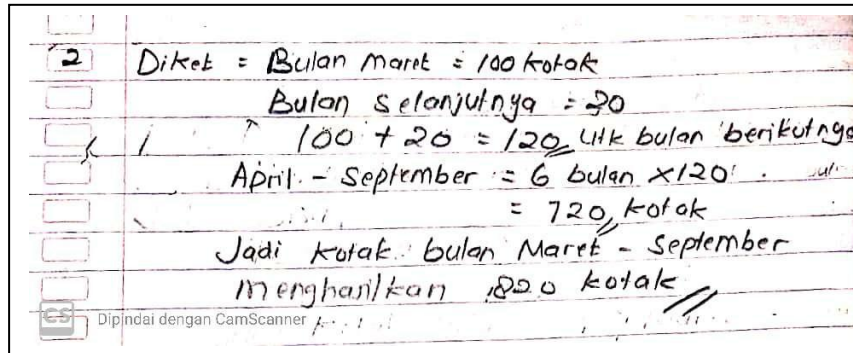 2 Diket = Bulan Maret = 100 kotak
Bulan selanjutnya = 20
100 + 20 = 120, utk bulan berikutnya
April - September = 6 bulan x 120
= 720, kotak
Jadi kotak bulan Maret - September
menghasilkan 820 kotak
CS Dipindai dengan CamScanner